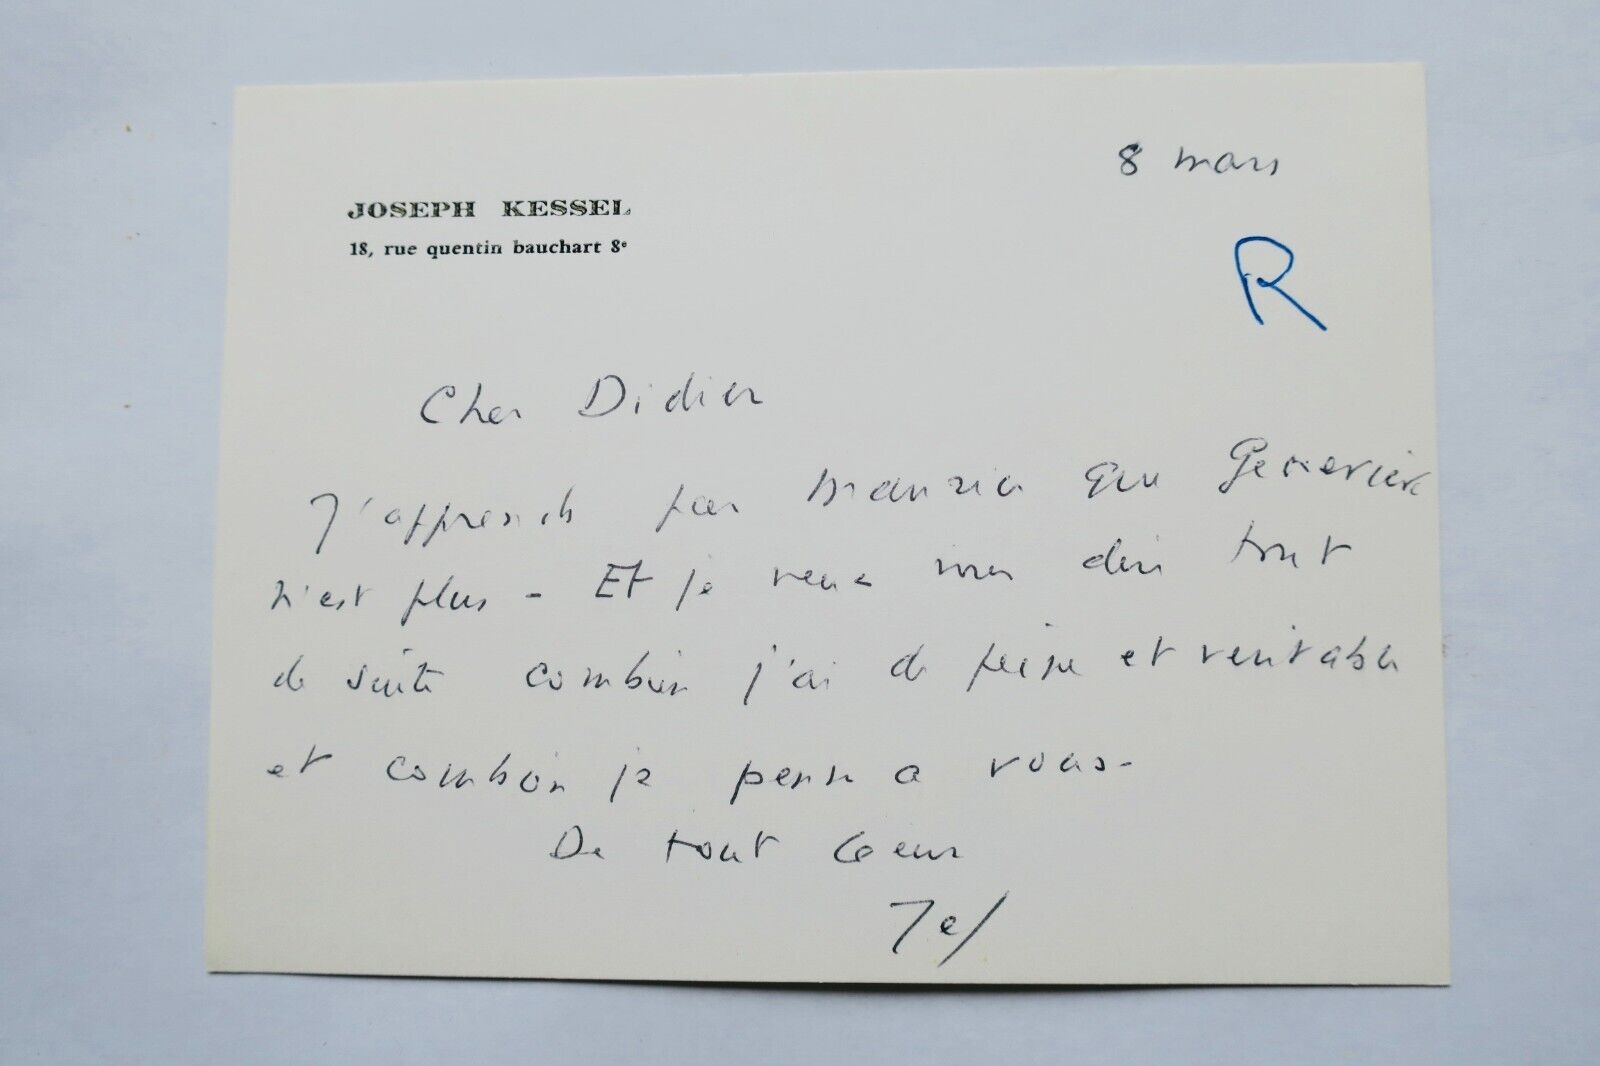 8 mars
JOSEPH KESSEL
18, rue quentin bauchart 8e
R
Cher Didier
J'apprends par que Geneviève
n'est plus - Et je veux vous dire tout
de suite combien j'ai de peine et veritable
et combien je pense a vous -
De tout cœur
Jef